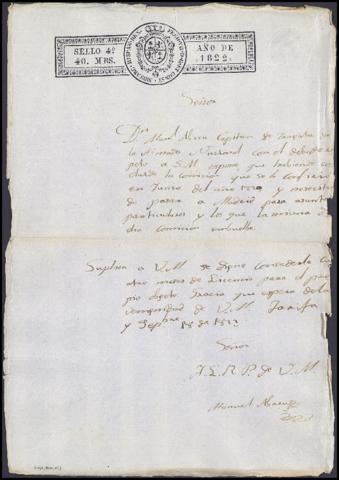 SELLO 4º
40. MRS.
AÑO DE
1822
Señor
Dn Manl Abreu Capitan de Fragata de
la Armada Nacional con el debido res
peto a S.M. expone que habiendo con
cluido la comision que se le confirio
en Junio del año y necesitan
de pasar a Madrid para asuntos
particulares y lo que la misma
dio comision
Suplica a V.M. se digne concederle cu
atro meses de Licencia para el pro
pio objeto. Gracia que espera de la
venignidad de V.M. Tarifa
y Sepbre 18 de 1822
Señor
A.L.R.P. de V.M.
Manuel Abreu